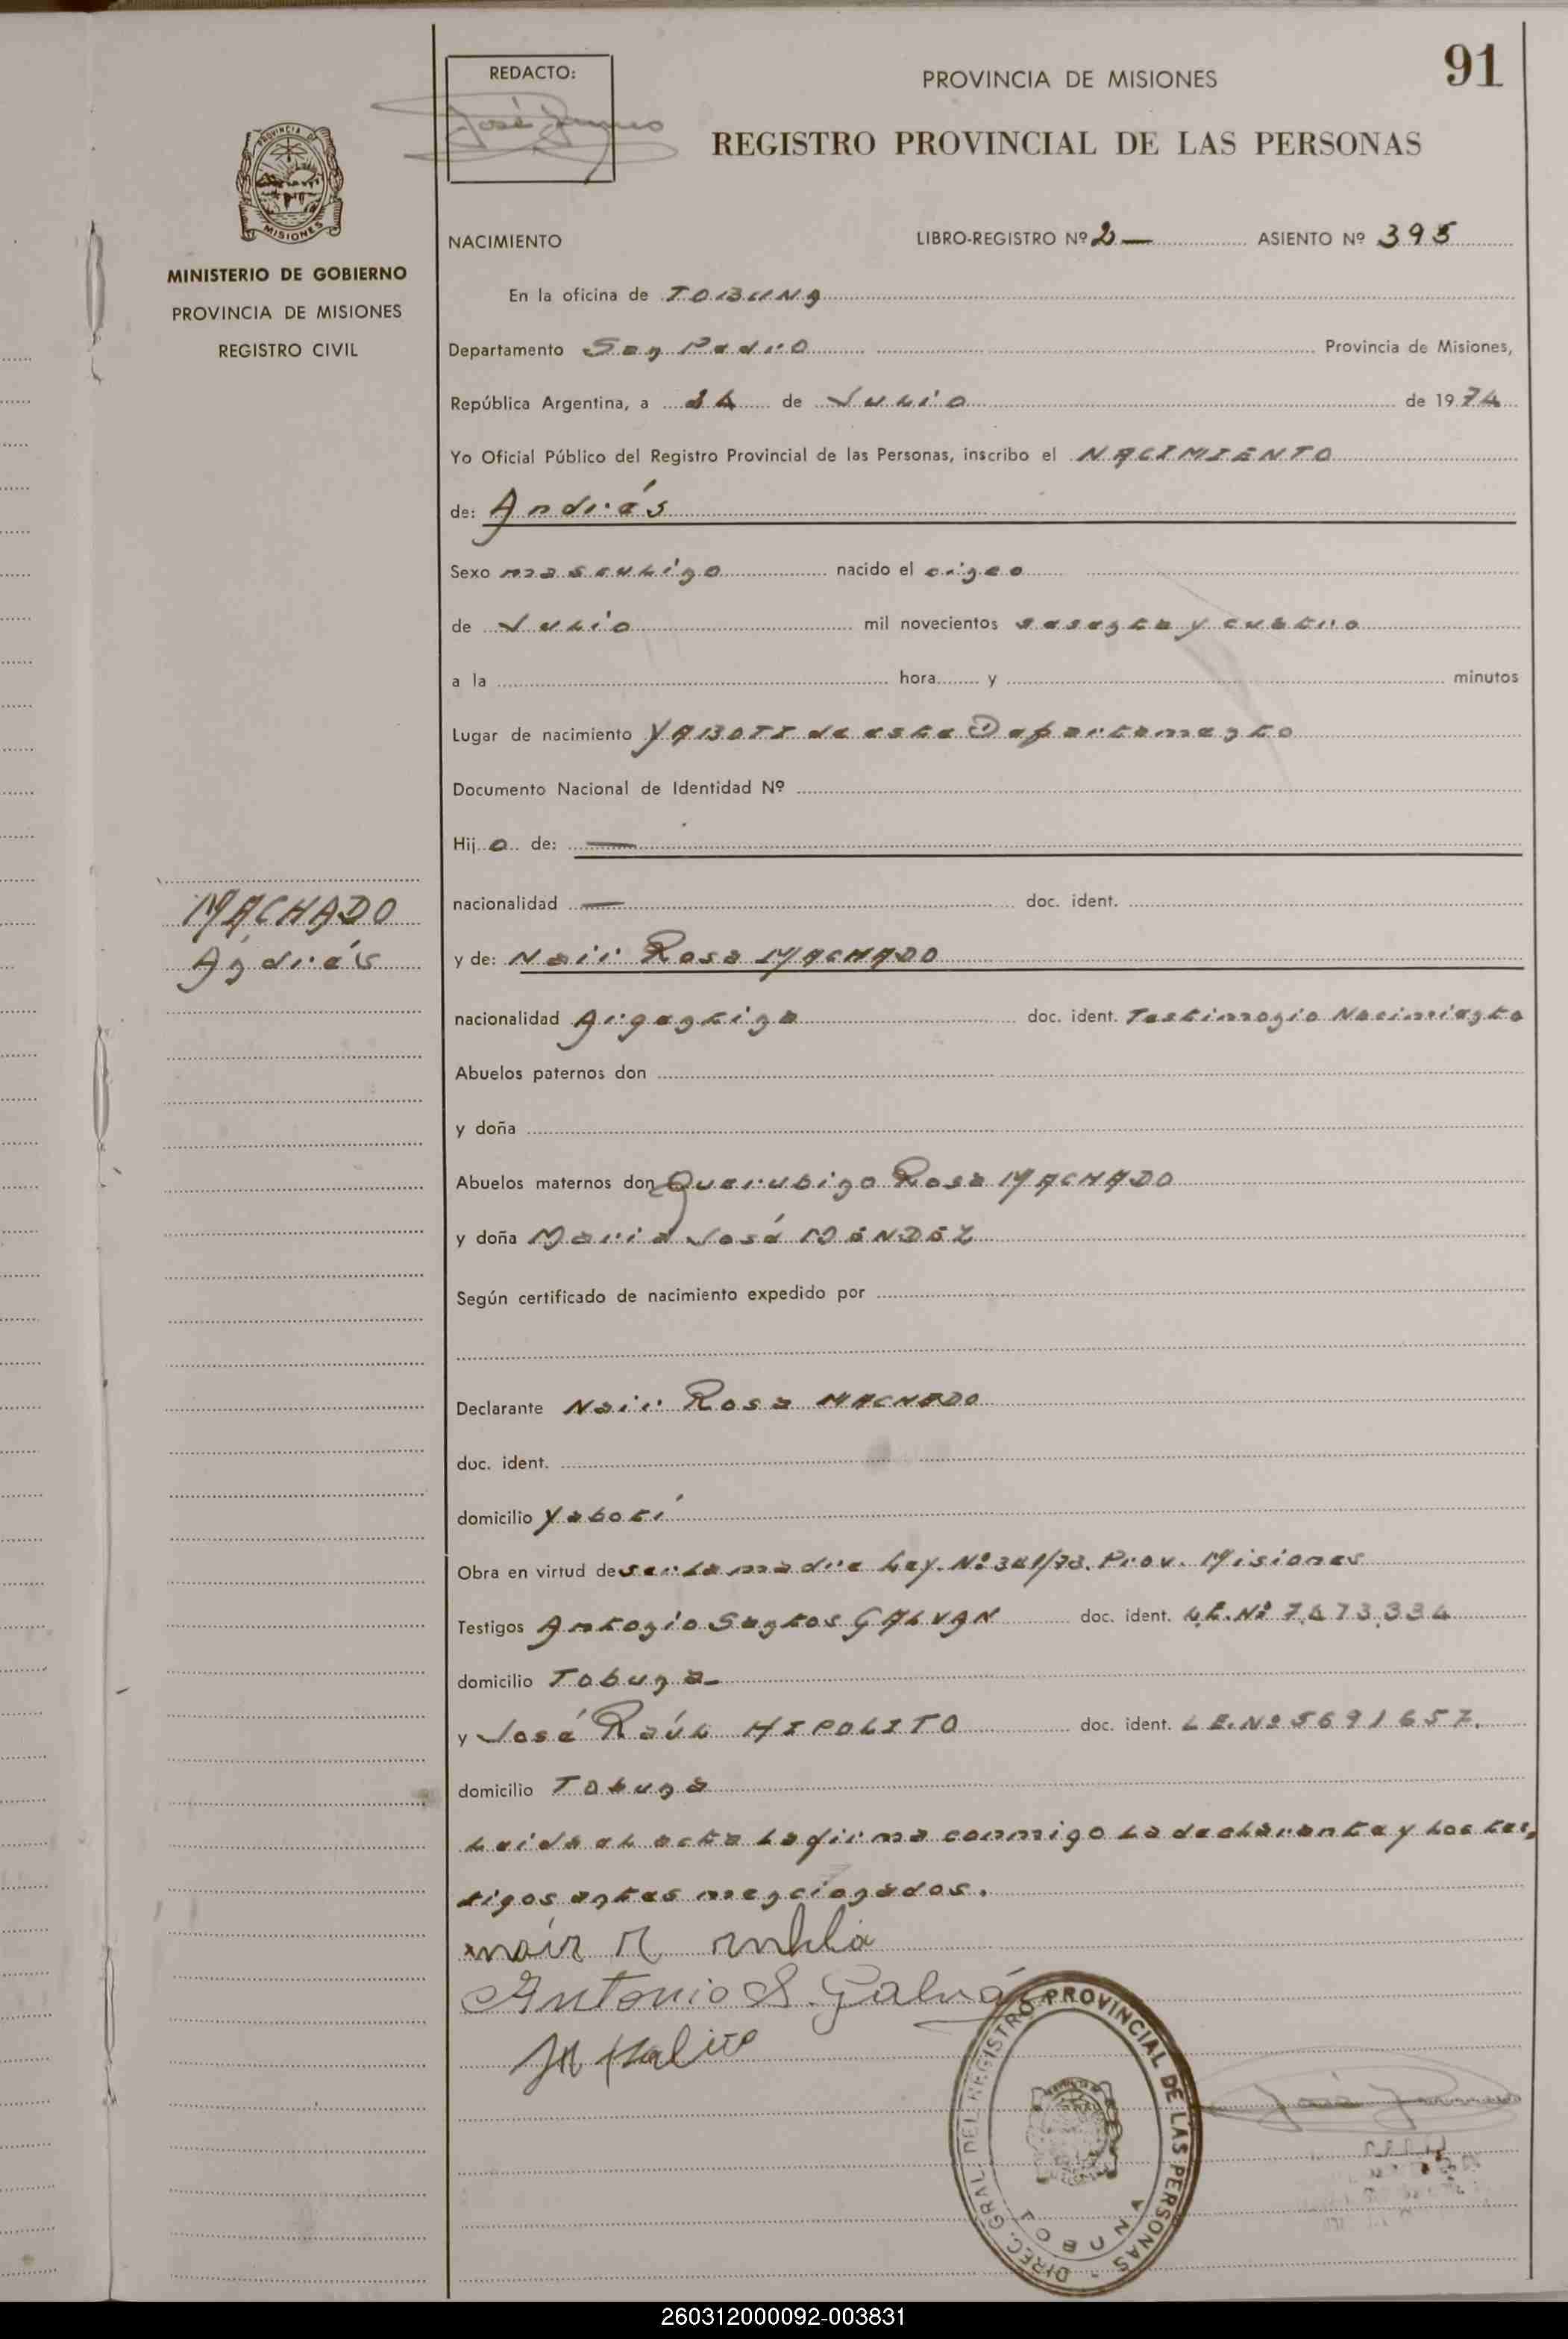 91
REDACTO:
PROVINCIA DE MISIONES
REGISTRO PROVINCIAL DE LAS PERSONAS
PROVINCIA DE
MISIONES
MINISTERIO DE GOBIERNO
PROVINCIA DE MISIONES
REGISTRO CIVIL
NACIMIENTO LIBRO-REGISTRO Nº 2— ASIENTO Nº 395
En la oficina de TOBUNA
Departamento San Pedro Provincia de Misiones,
República Argentina, a 24 de Julio de 1974
Yo Oficial Público del Registro Provincial de las Personas, inscribo el NACIMIENTO
de: Andrés
Sexo masculino nacido el cinco
de Julio mil novecientos sesenta y cuatro
a la hora y minutos
Lugar de nacimiento YABOTI de este Departamento
Documento Nacional de Identidad Nº
Hijo de: —
nacionalidad — doc. ident.
MACHADO
Andrés
y de: Nair Rosa MACHADO
nacionalidad Argentina doc. ident. Testimonio Nacimiento
Abuelos paternos don
y doña
Abuelos maternos don Querubino Rosa MACHADO
y doña María José MéNDéZ
Según certificado de nacimiento expedido por
Declarante Nair Rosa MACHADO
doc. ident.
domicilio Yabotí
Obra en virtud de ser la madre Ley. Nº 341/73. Prov. Misiones
Testigos Antonio Santos GALVAN doc. ident. L.E. Nº 7.473.334
domicilio Tobuna-
y José Raúl HIPOLITO doc. ident. L.E. Nº 5691657.
domicilio Tobuna
Leida el acta la firma conmigo la declarante y los tes,
tigos antes mencionados.
nair R
Antonio S. Galván
DIREC. GRAL. DEL REGISTRO PROVINCIAL DE LAS PERSONAS -
TOBUNA
260312000092-003831